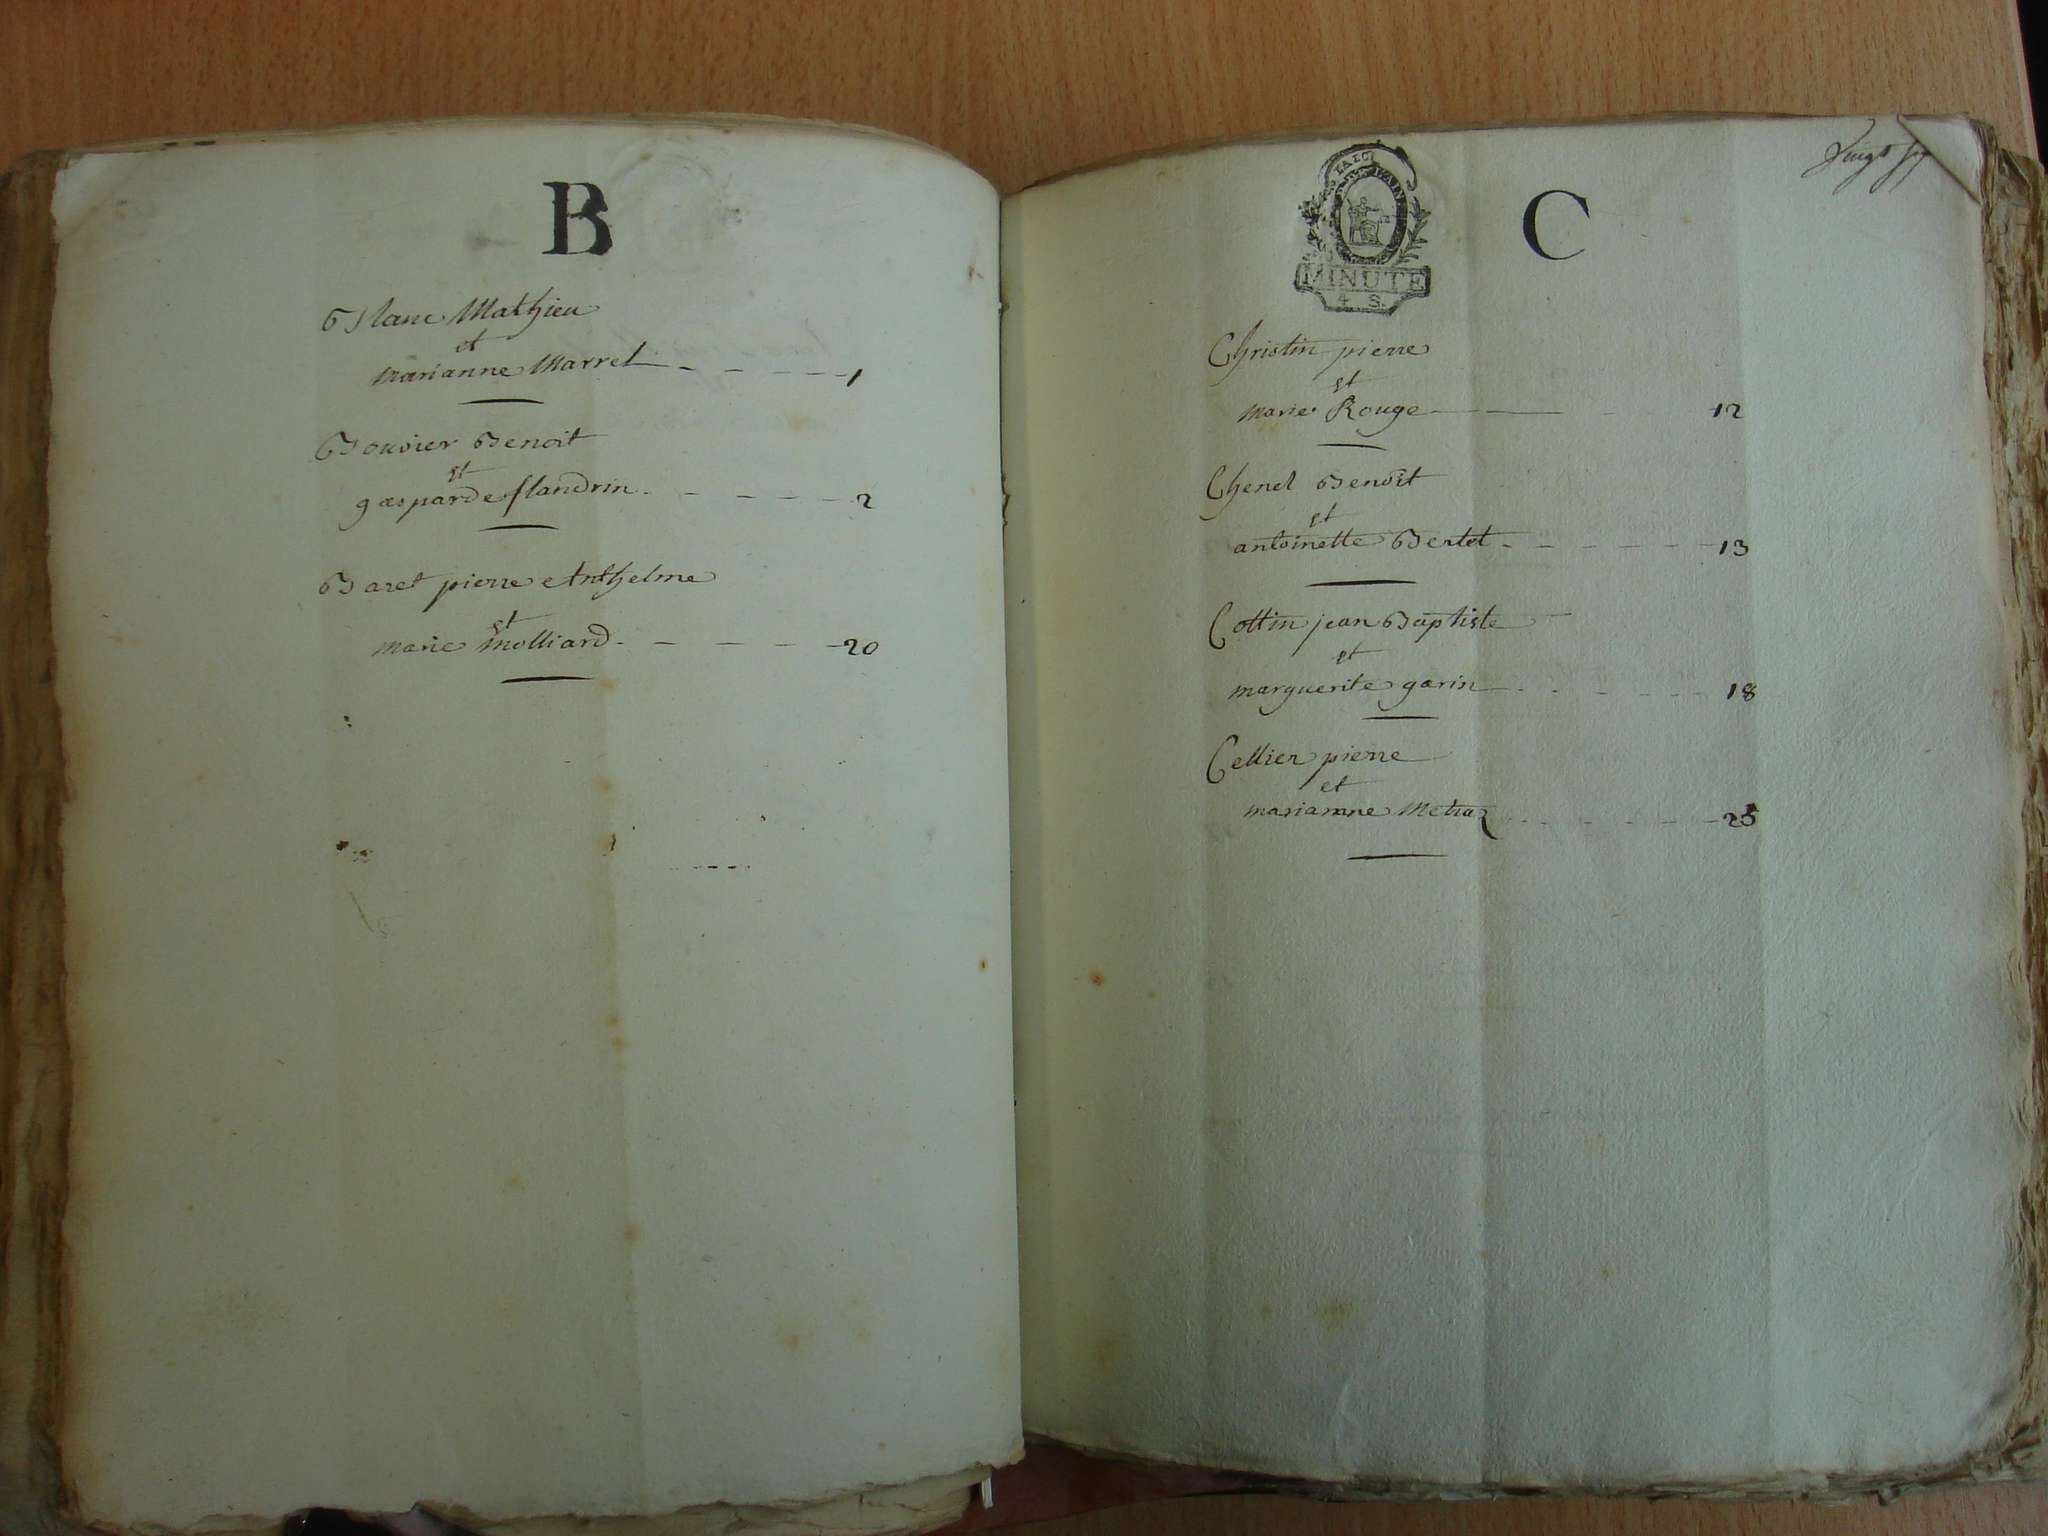 B
Blanc Mathieu
et
marianne Marrel - - - - - 1
Bouvier Benoit
et
gasparde flandrin - - - - - 2
Baret pierre Anthelme
et
marie Molliard - - - - - 20
MINUTE
4 S.
C
Christin pierre
et
marie Rouge 12
Chenel Benoit
et
antoinette Bertet - - - - - 13
Cottin jean Baptiste
et
marguerite garin - - - - - 18
Cellier pierre
et
marianne Metraz - - - - - 25